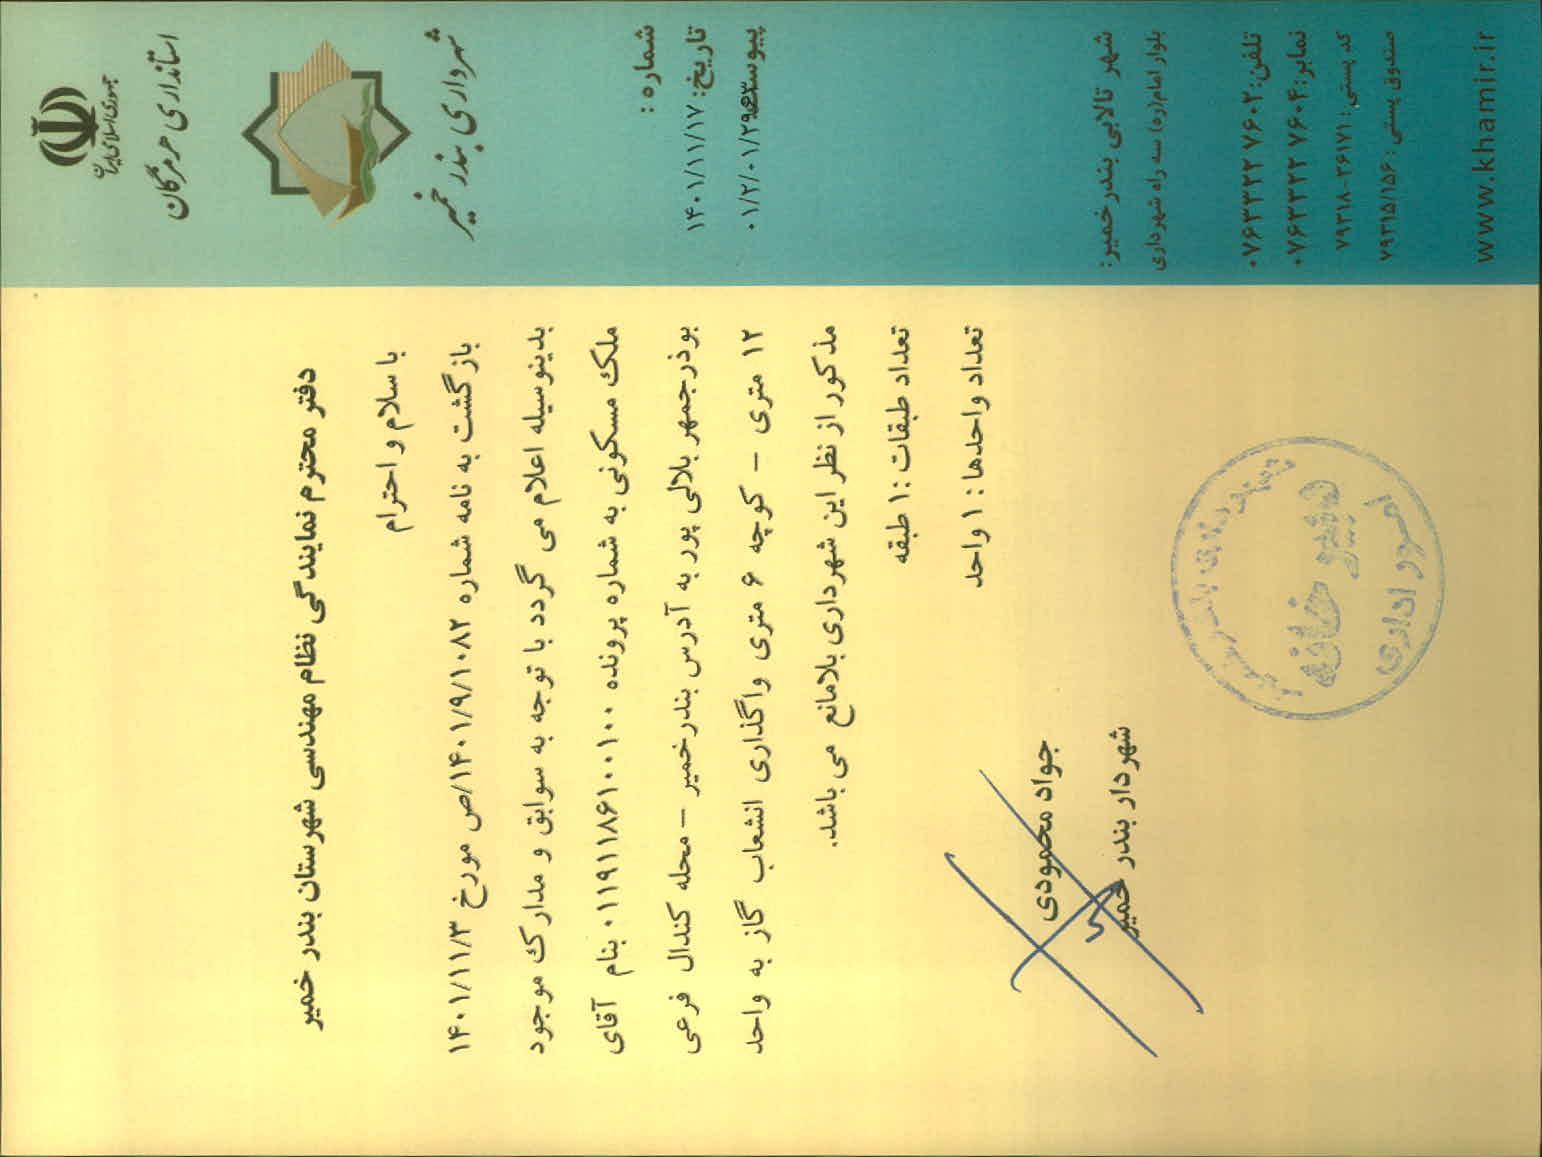 جمهوری اسلامی ایران
استانداری هرمزگان
شهرداری بندر خمیر
شماره :
تاریخ: ۱۴۰۱/۱۱/۱۷
پیوست:
شهر تالابی بندرخمیر:
بلوار امام(ره) سه راه شهرداری
تلفن: ۰۷۶۳۳۲۲۷۶۰۲
نمابر: ۰۷۶۳۳۲۲۷۶۰۴
کد پستی: ۷۹۳۱۸-۳۶۱۷۱
صندوق پستی : ۷۹۳۱۵/۱۵۶
www.khamir.ir
دفتر محترم نمایندگی نظام مهندسی شهرستان بندر خمیر
با سلام و احترام
بازگشت به نامه شماره ۱۴۰۱/۹/۱۰۸۲/ص مورخ ۱۴۰۱/۱۱/۳
بدینوسیله اعلام می گردد با توجه به سوابق و مدارک موجود
ملک مسکونی به شماره پرونده ۰۱۱۹۱۱۸۶۱۰۰۱۰۰ بنام آقای
بوذرجمهر بلالی پور به آدرس بندرخمیر – محله کندال فرعی
۱۲ متری – کوچه ۶ متری واگذاری انشعاب گاز به واحد
مذکور از نظر این شهرداری بلامانع می باشد.
تعداد طبقات :۱ طبقه
تعداد واحدها : ۱ واحد
جواد محمودی
شهردار بندر خمیر
شهرداری بندر خمیر
دبیرخانه
امور اداری